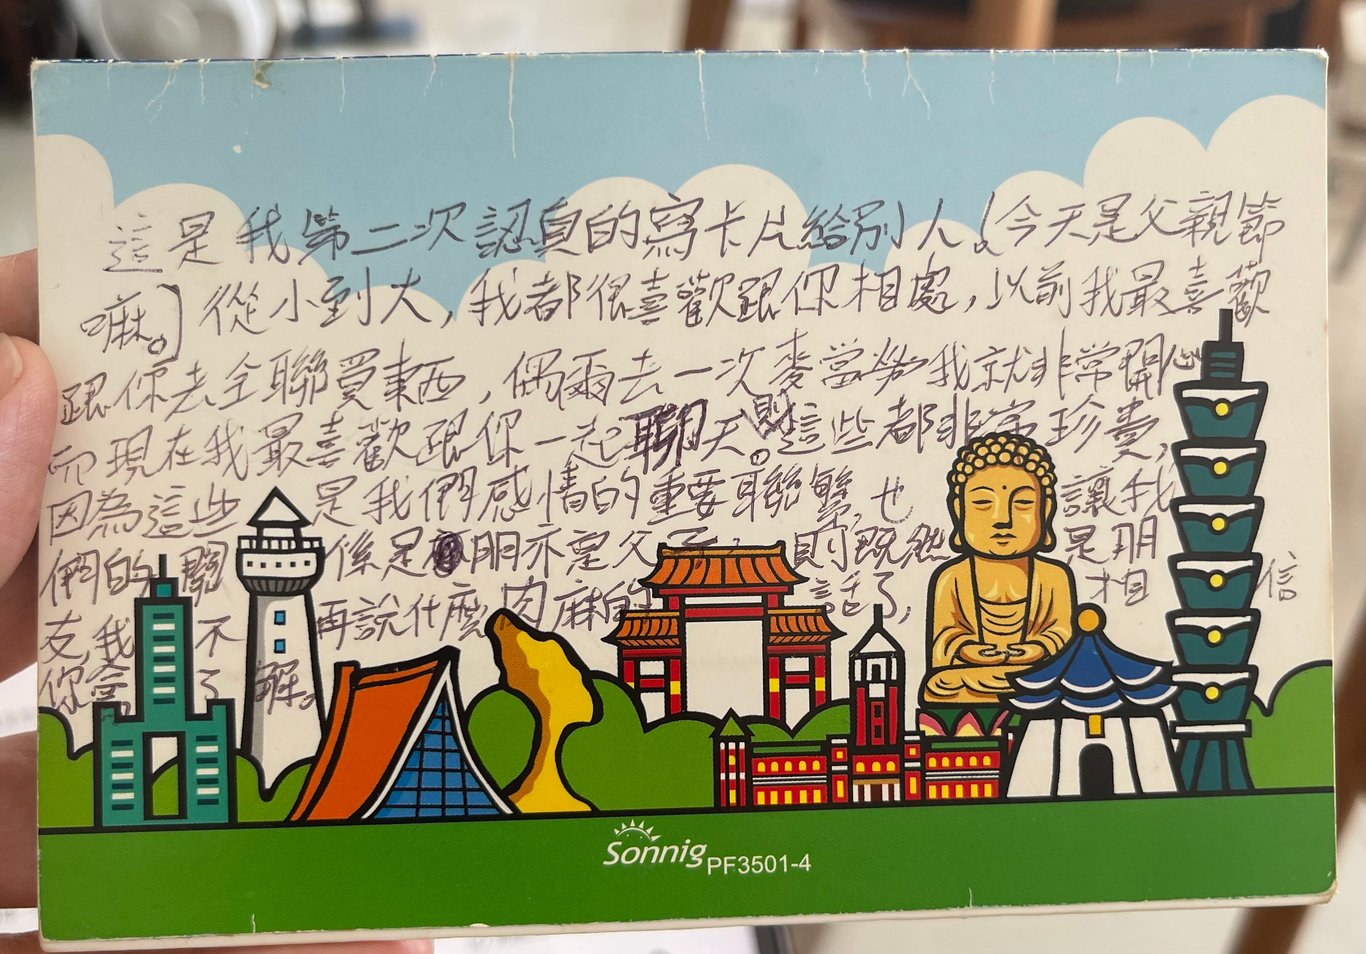 這是我第二次認真的寫卡片給別人。(今天是父親節
嘛。)從小到大,我都很喜歡跟你相處,以前我最喜歡
跟你去全聯買東西,偶爾去一次麥當勞我就非常開心
而現在我最喜歡跟你一起聊天。則這些都非常珍貴,
因為這些是我們感情的重要聯繫,也讓我
們的關係是朋亦是父子,則既然是朋
友,我不再說什麼肉麻的話了,相信
你會了解。
Sonnig PF3501-4